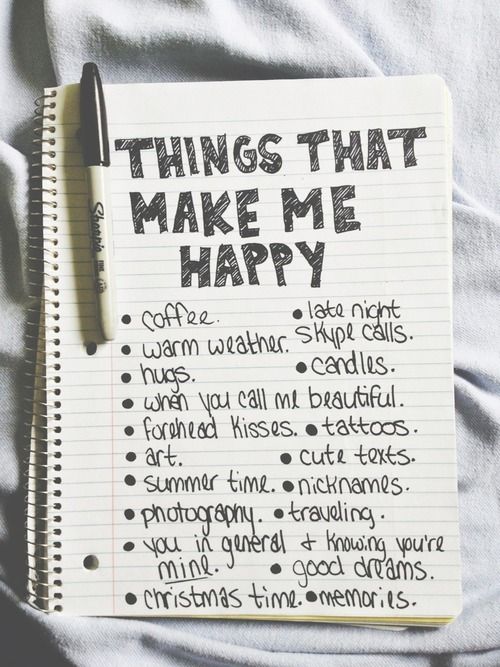 THINGS THAT
MAKE ME
HAPPY
• coffee. • late night
skype calls.
• warm weather.
• hugs. • candles.
• when you call me beautiful.
• forehead kisses. • tattoos.
• art. • cute texts.
• summer time. • nicknames.
• photography. • traveling.
• you in general + knowing you're
mine. • good dreams.
• christmas time. • memories.
Sharpie